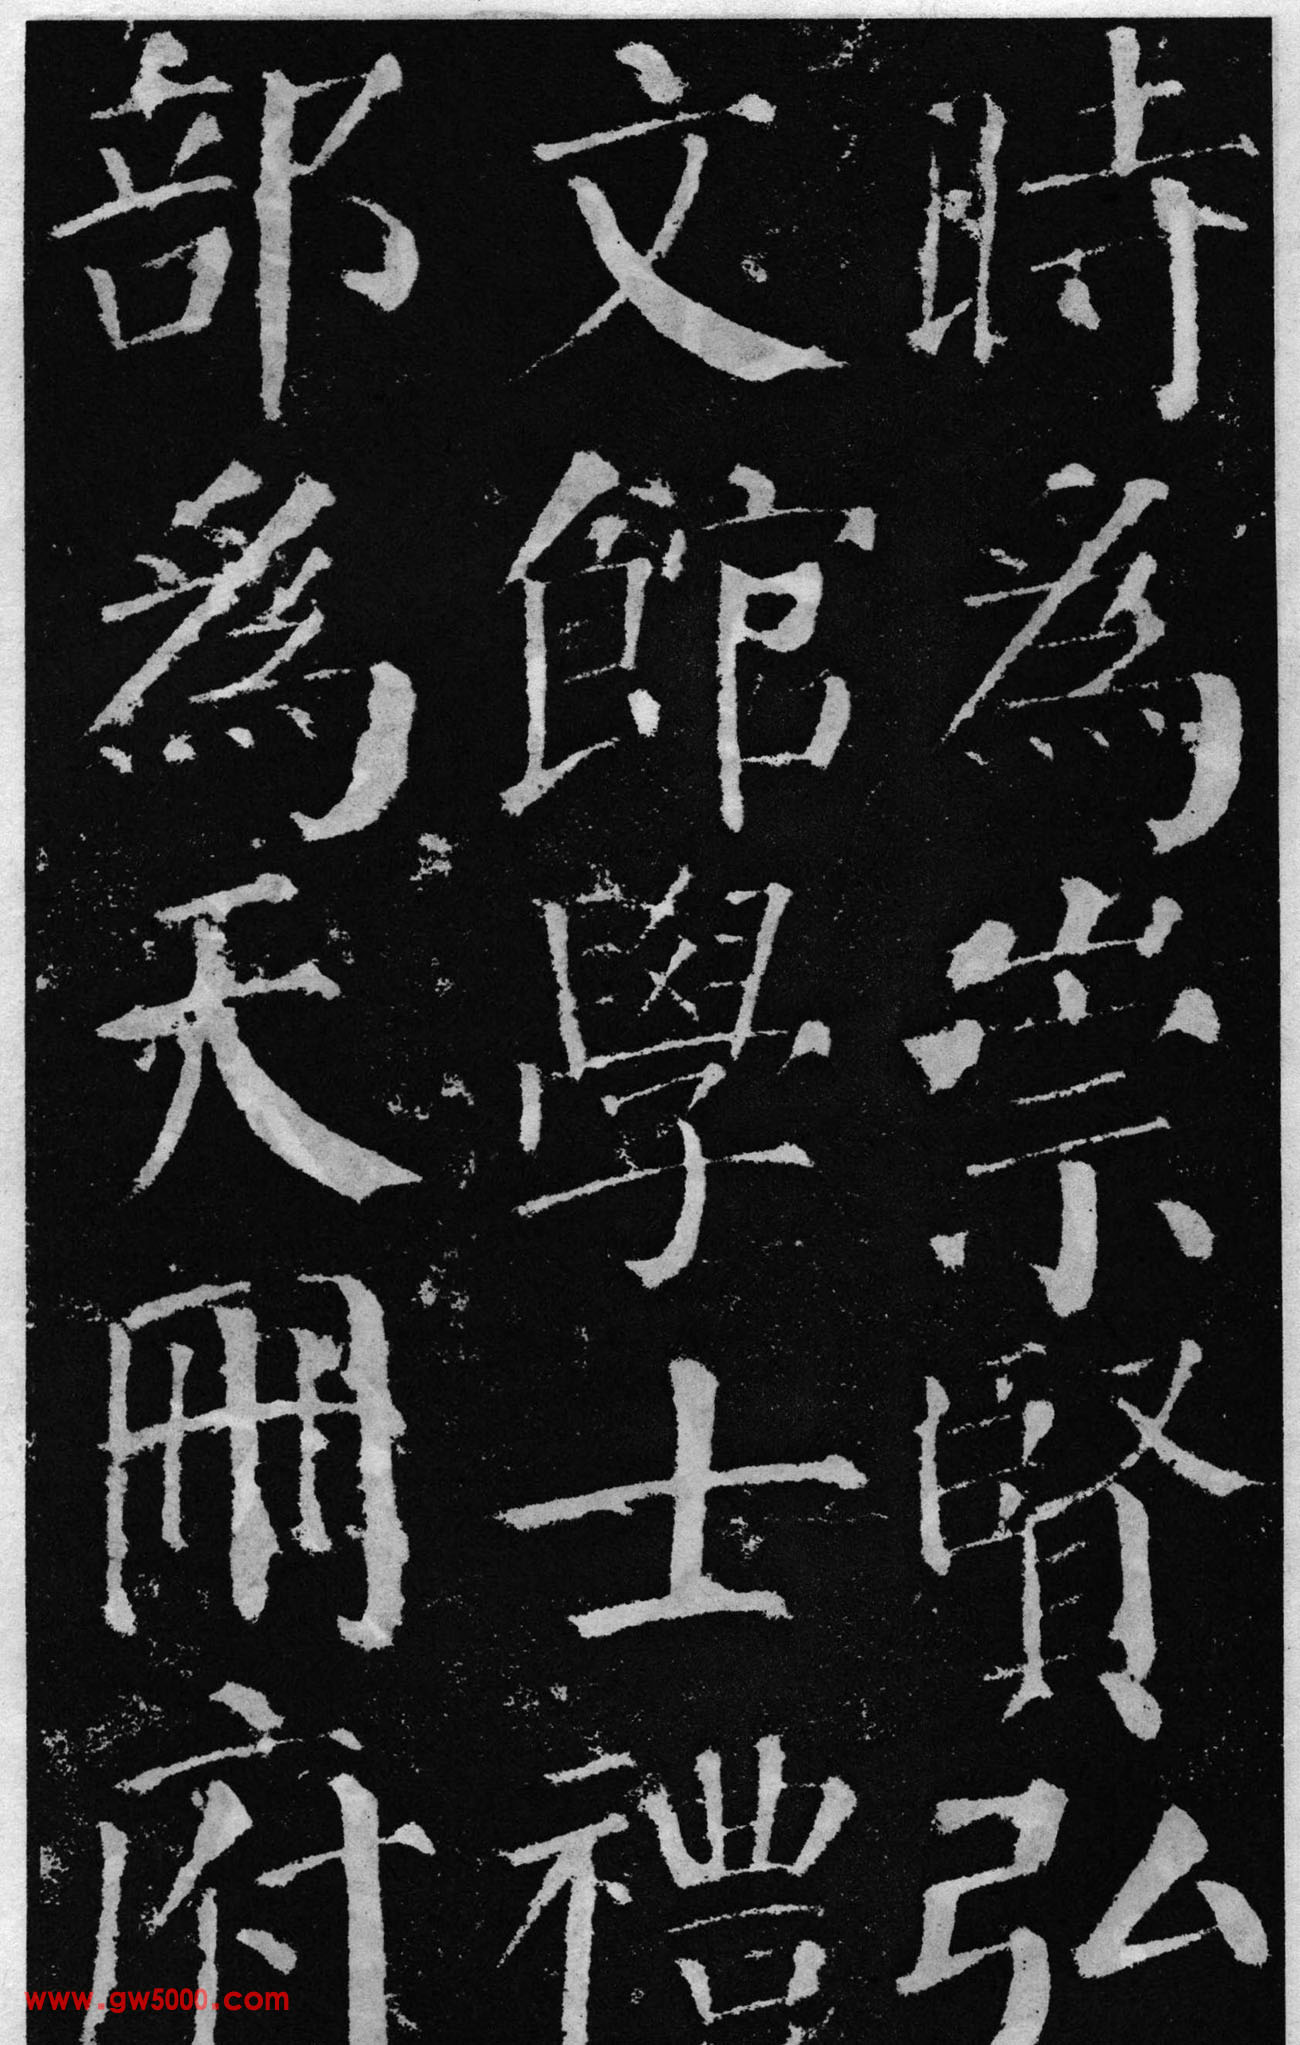 時為崇賢弘
文館學士禮
部為天冊府
www.gw5000.com